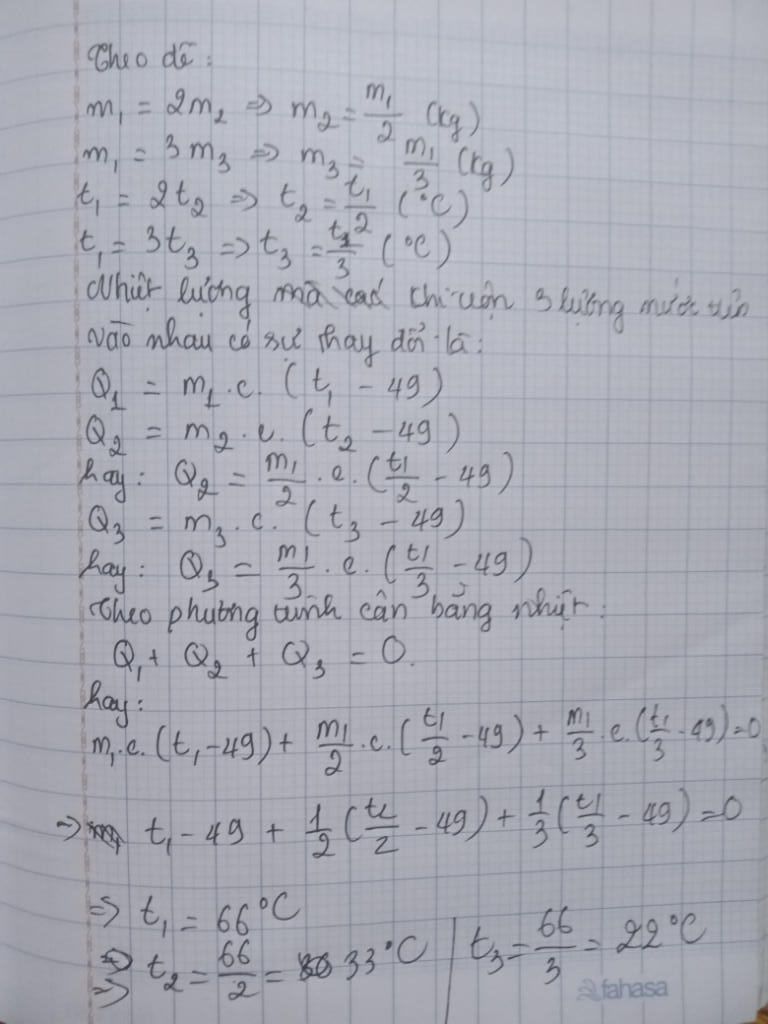 Theo đề:
m₁ = 2m₂ => m₂ = m₁/2 (kg)
m₁ = 3m₃ => m₃ = m₁/3 (kg)
t₁ = 2t₂ => t₂ = t₁/2 (°C)
t₁ = 3t₃ => t₃ = t₁/3 (°C)
Nhiệt lượng mà khi trộn 3 lượng nước trên
vào nhau có sự thay đổi là:
Q₁ = m₁.c.(t₁ - 49)
Q₂ = m₂.c.(t₂ - 49)
hay: Q₂ = m₁/2 .c.(t₁/2 - 49)
Q₃ = m₃.c.(t₃ - 49)
hay: Q₃ = m₁/3 .c.(t₁/3 - 49)
Theo phương trình cân bằng nhiệt:
Q₁ + Q₂ + Q₃ = 0.
hay:
m₁.c.(t₁ - 49) + m₁/2 .c.(t₁/2 - 49) + m₁/3 .c.(t₁/3 - 49) = 0
=> t₁ - 49 + 1/2 (t₁/2 - 49) + 1/3 (t₁/3 - 49) = 0
=> t₁ = 66°C
=> t₂ = 66/2 = 33°C | t₃ = 66/3 = 22°C
=>
fahasa